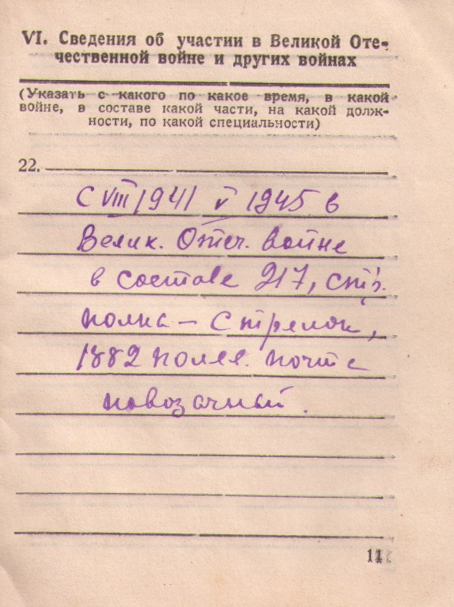 VI. Сведения об участии в Великой Оте-
чественной войне и других войнах
(Указать с какого по какое время, в какой
войне, в составе какой части, на какой долж-
ности, по какой специальности)
22.
С VIII 1941 V 1945 в
Велик. Отеч. войне
в составе 217, стр.
полка – стрелок,
1882 полев. почта
повозочный.
11